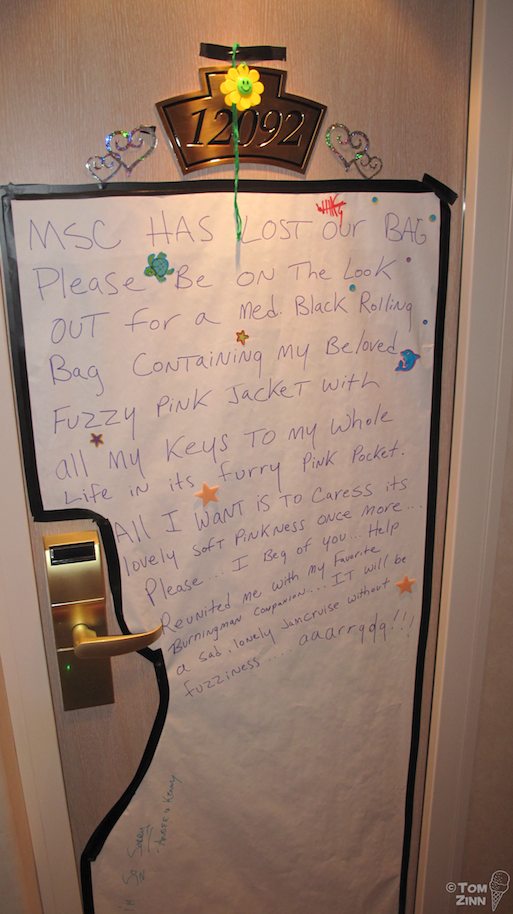 12092
MSC HAS LOST OUR BAG
Please Be ON The LOOK
OUT for a Med. Black Rolling
Bag Containing my Beloved
Fuzzy Pink Jacket with
all my keys to my whole
Life in its furry Pink Pocket.
All I want is to caress its
lovely soft Pinkness once more...
Please... I Beg of you... Help
Reunited me with my favorite
Burningman Companion.... IT will be
a sad, lonely Jamcruise without
fuzziness..... aaarrgdg!!!
I'm So Sorry
© TOM
ZINN